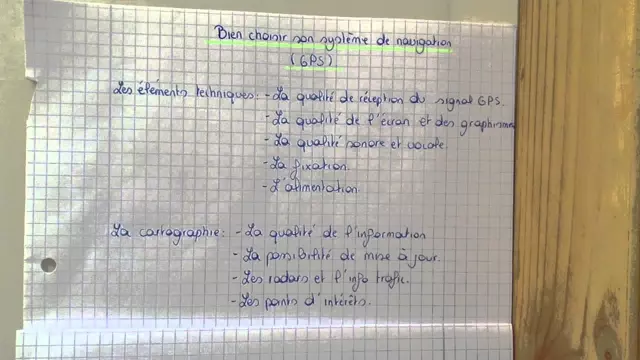 Bien choisir son système de navigation
(GPS)
Les éléments techniques: - La qualité de réception du signal GPS.
- La qualité de l'écran et des graphismes
- La qualité sonore et vocale.
- La fixation.
- L'alimentation.
La cartographie: - La qualité de l'information
- La possibilité de mise à jour.
- Les radars et l'info trafic.
- Les points d'intérêts.